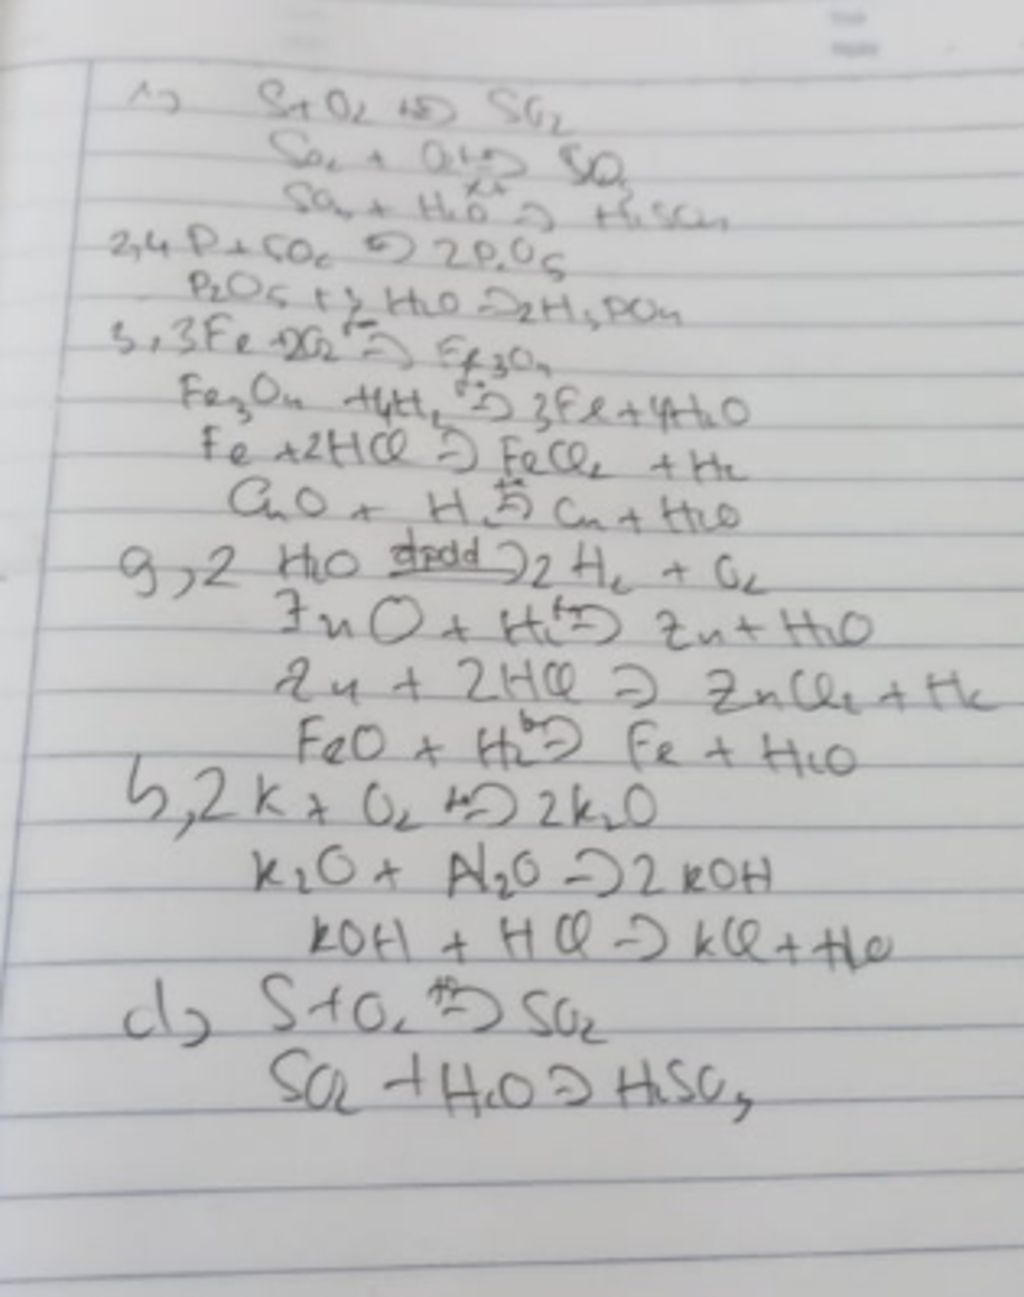 1, S + O2 t°→ SO2
SO2 + O2 t°→ SO3
SO3 + H2O → H2SO4
2, 4P + 5O2 t°→ 2P2O5
P2O5 + 3H2O → 2H3PO4
3, 3Fe + 2O2 t°→ Fe3O4
Fe3O4 + 4H2 t°→ 3Fe + 4H2O
Fe + 2HCl → FeCl2 + H2
CuO + H2 t°→ Cu + H2O
9, 2 H2O đpdd→ 2H2 + O2
ZnO + H2 t°→ Zn + H2O
Zn + 2HCl → ZnCl2 + H2
FeO + H2 t°→ Fe + H2O
b, 2K + O2 t°→ 2K2O
K2O + H2O → 2KOH
KOH + HCl → KCl + H2O
d, S + O2 t°→ SO2
SO2 + H2O → H2SO3